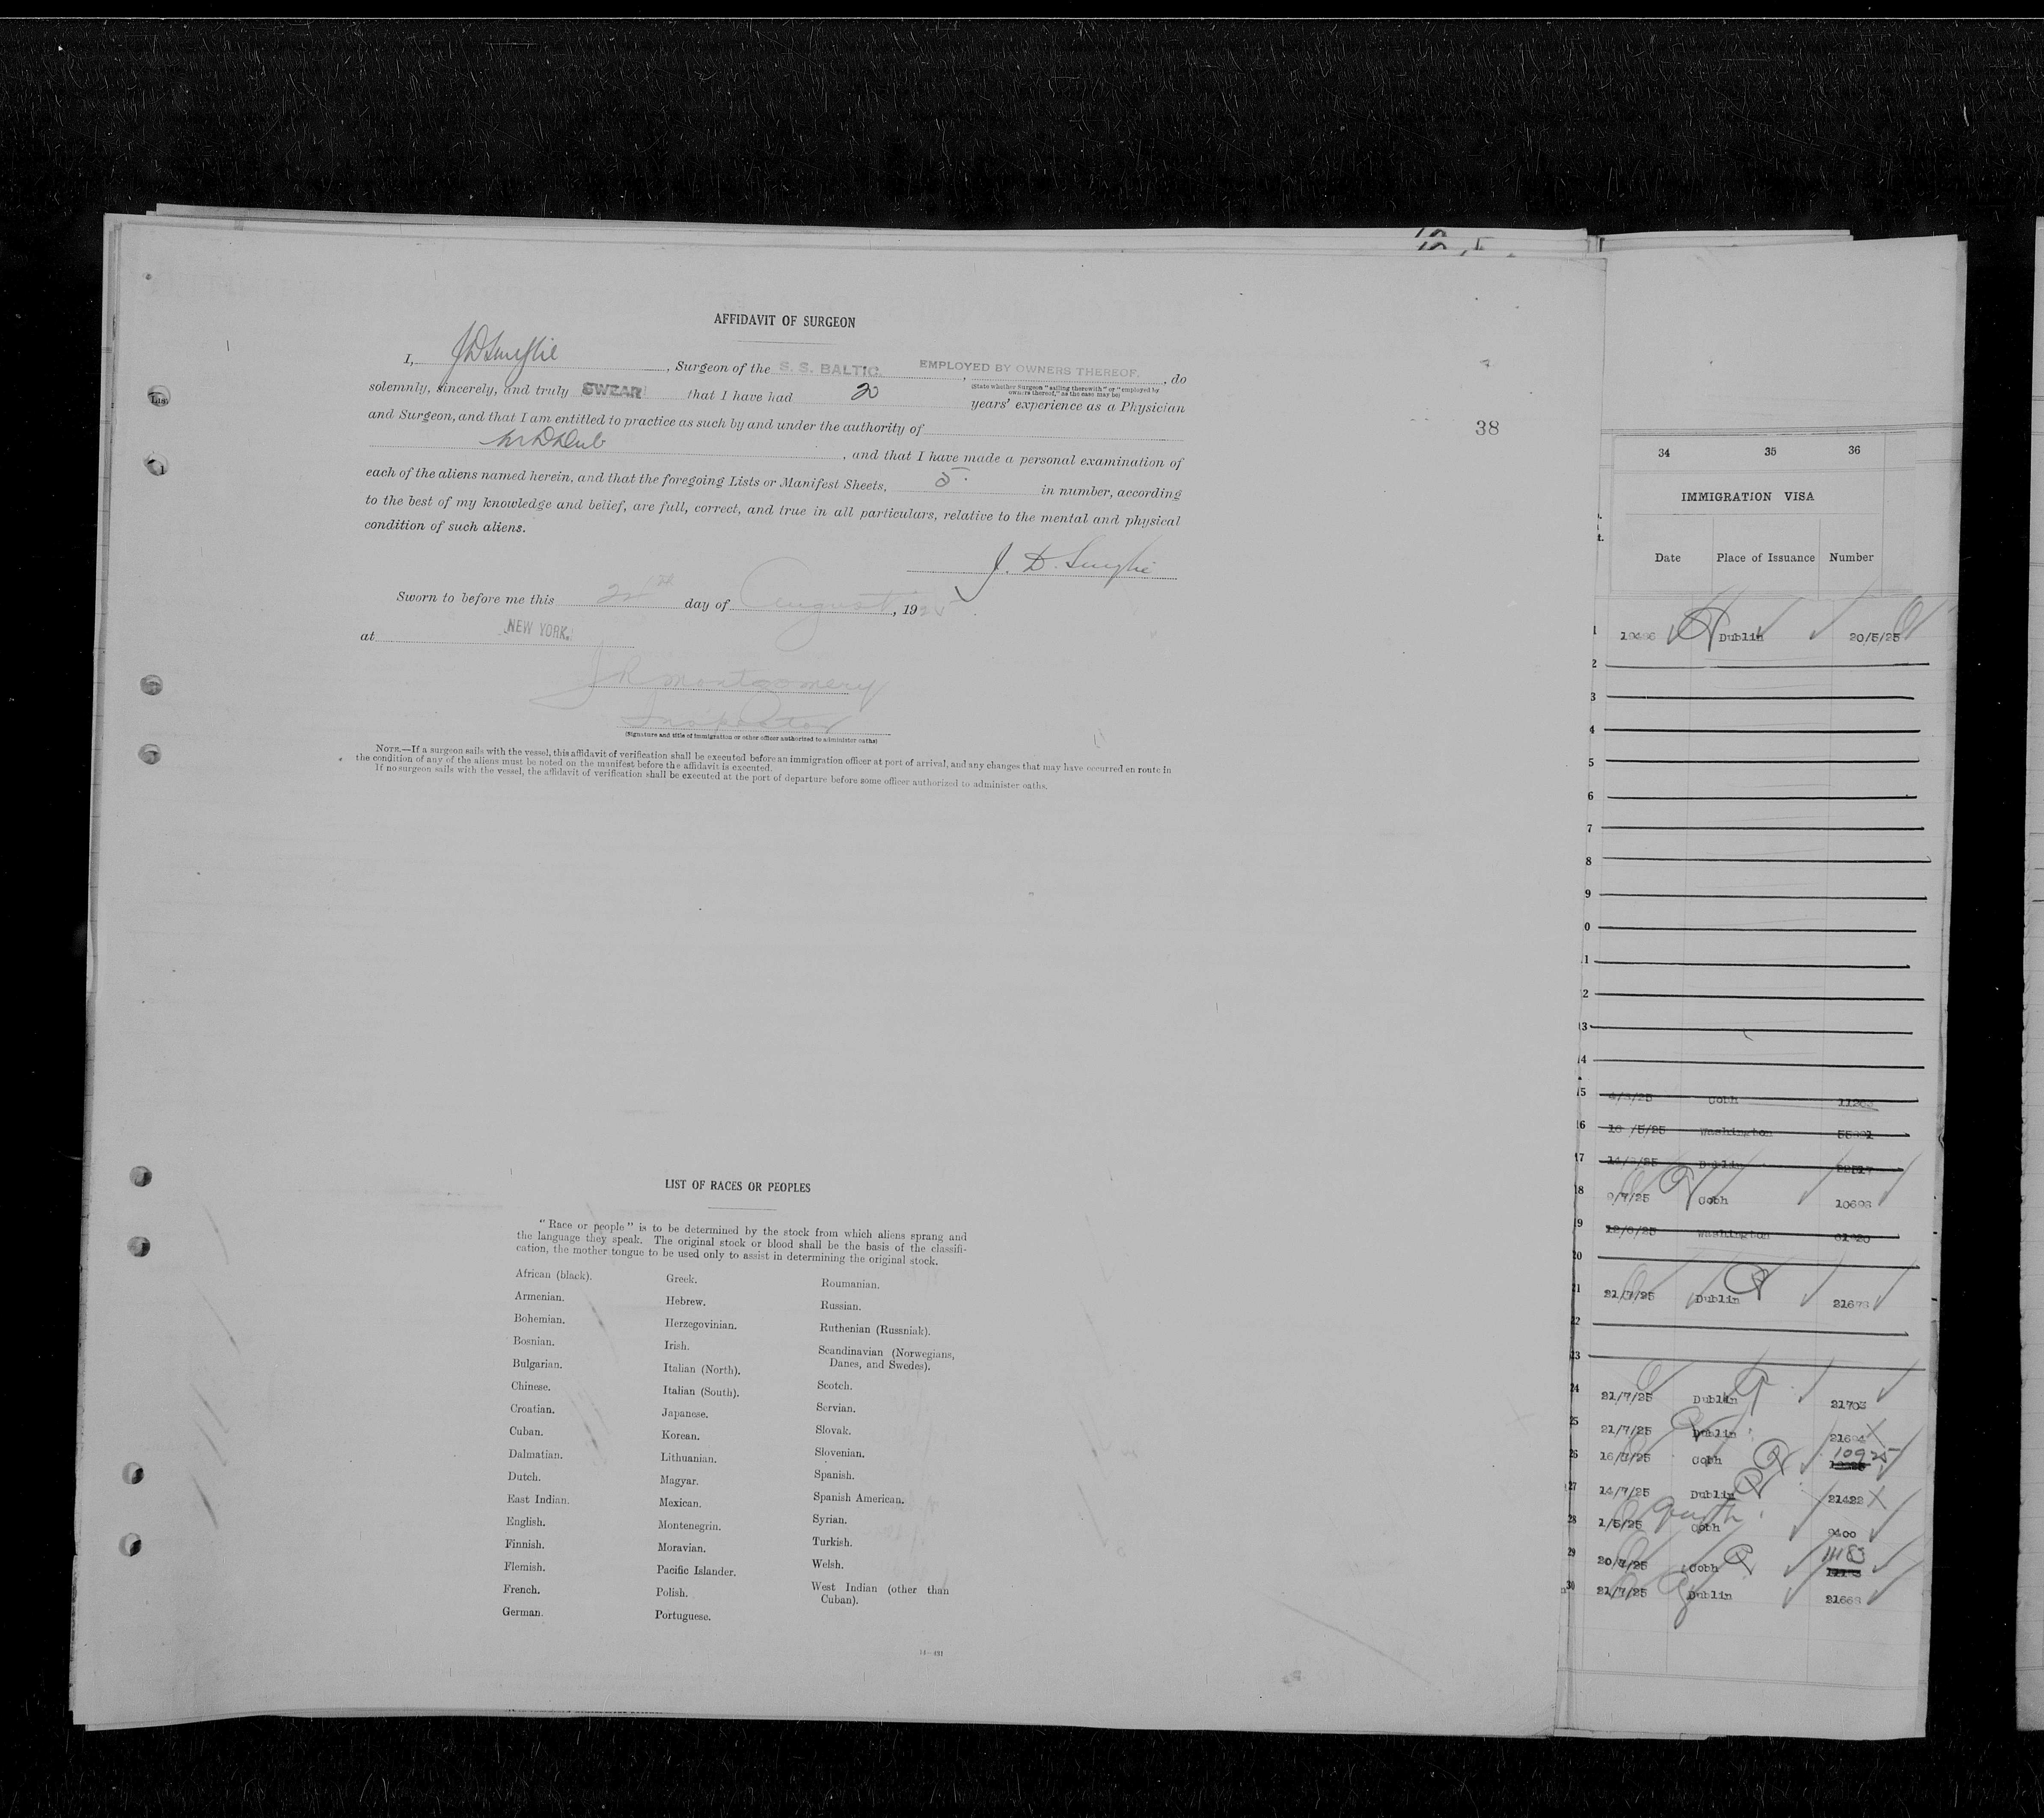 AFFIDAVIT OF SURGEON
I, , Surgeon of the S. S. BALTIC. , EMPLOYED BY OWNERS THEREOF. , do
(State whether Surgeon "sailing therewith" or "employed by
owners thereof," as the case may be)
solemnly, sincerely, and truly SWEAR that I have had 20 years' experience as a Physician
and Surgeon, and that I am entitled to practice as such by and under the authority of
, and that I have made a personal examination of
each of the aliens named herein, and that the foregoing Lists or Manifest Sheets, 5. in number, according
to the best of my knowledge and belief, are full, correct, and true in all particulars, relative to the mental and physical
condition of such aliens.
J. D.
Sworn to before me this day of August, 1925
at NEW YORK.
J R Montgomery
Inspector
(Signature and title of immigration or other officer authorized to administer oaths)
NOTE.—If a surgeon sails with the vessel, this affidavit of verification shall be executed before an immigration officer at port of arrival, and any changes that may have occurred en route in
the condition of any of the aliens must be noted on the manifest before the affidavit is executed.
If no surgeon sails with the vessel, the affidavit of verification shall be executed at the port of departure before some officer authorized to administer oaths.
38
LIST OF RACES OR PEOPLES
"Race or people" is to be determined by the stock from which aliens sprang and
the language they speak. The original stock or blood shall be the basis of the classifi-
cation, the mother tongue to be used only to assist in determining the original stock.
African (black).
Armenian.
Bohemian.
Bosnian.
Bulgarian.
Chinese.
Croatian.
Cuban.
Dalmatian.
Dutch.
East Indian.
English.
Finnish.
Flemish.
French.
German.
Greek.
Hebrew.
Herzegovinian.
Irish.
Italian (North).
Italian (South).
Japanese.
Korean.
Lithuanian.
Magyar.
Mexican.
Montenegrin.
Moravian.
Pacific Islander.
Polish.
Portuguese.
Roumanian.
Russian.
Ruthenian (Russniak).
Scandinavian (Norwegians,
Danes, and Swedes).
Scotch.
Servian.
Slovak.
Slovenian.
Spanish.
Spanish American.
Syrian.
Turkish.
Welsh.
West Indian (other than
Cuban).
34 35 36
IMMIGRATION VISA
Date Place of Issuance Number
1 Dublin 20/5/25
2
3
4
5
6
7
8
9
0
1
2
13
14
15 Cobh
16 /5/25 Washington
17 Dublin
18 9/7/25 Cobh 10698
19 Washington
20
21 21/7/25 Dublin
22
23
24 21/7/25 Dublin 21703
25 21/7/25 Dublin 21694
26 16/7/25 Cobh 10925
27 14/7/25 Dublin 21422
28 1/5/25 Cobh 9400
29 20/7/25 Cobh 11183
30 21/7/25 Dublin 21668